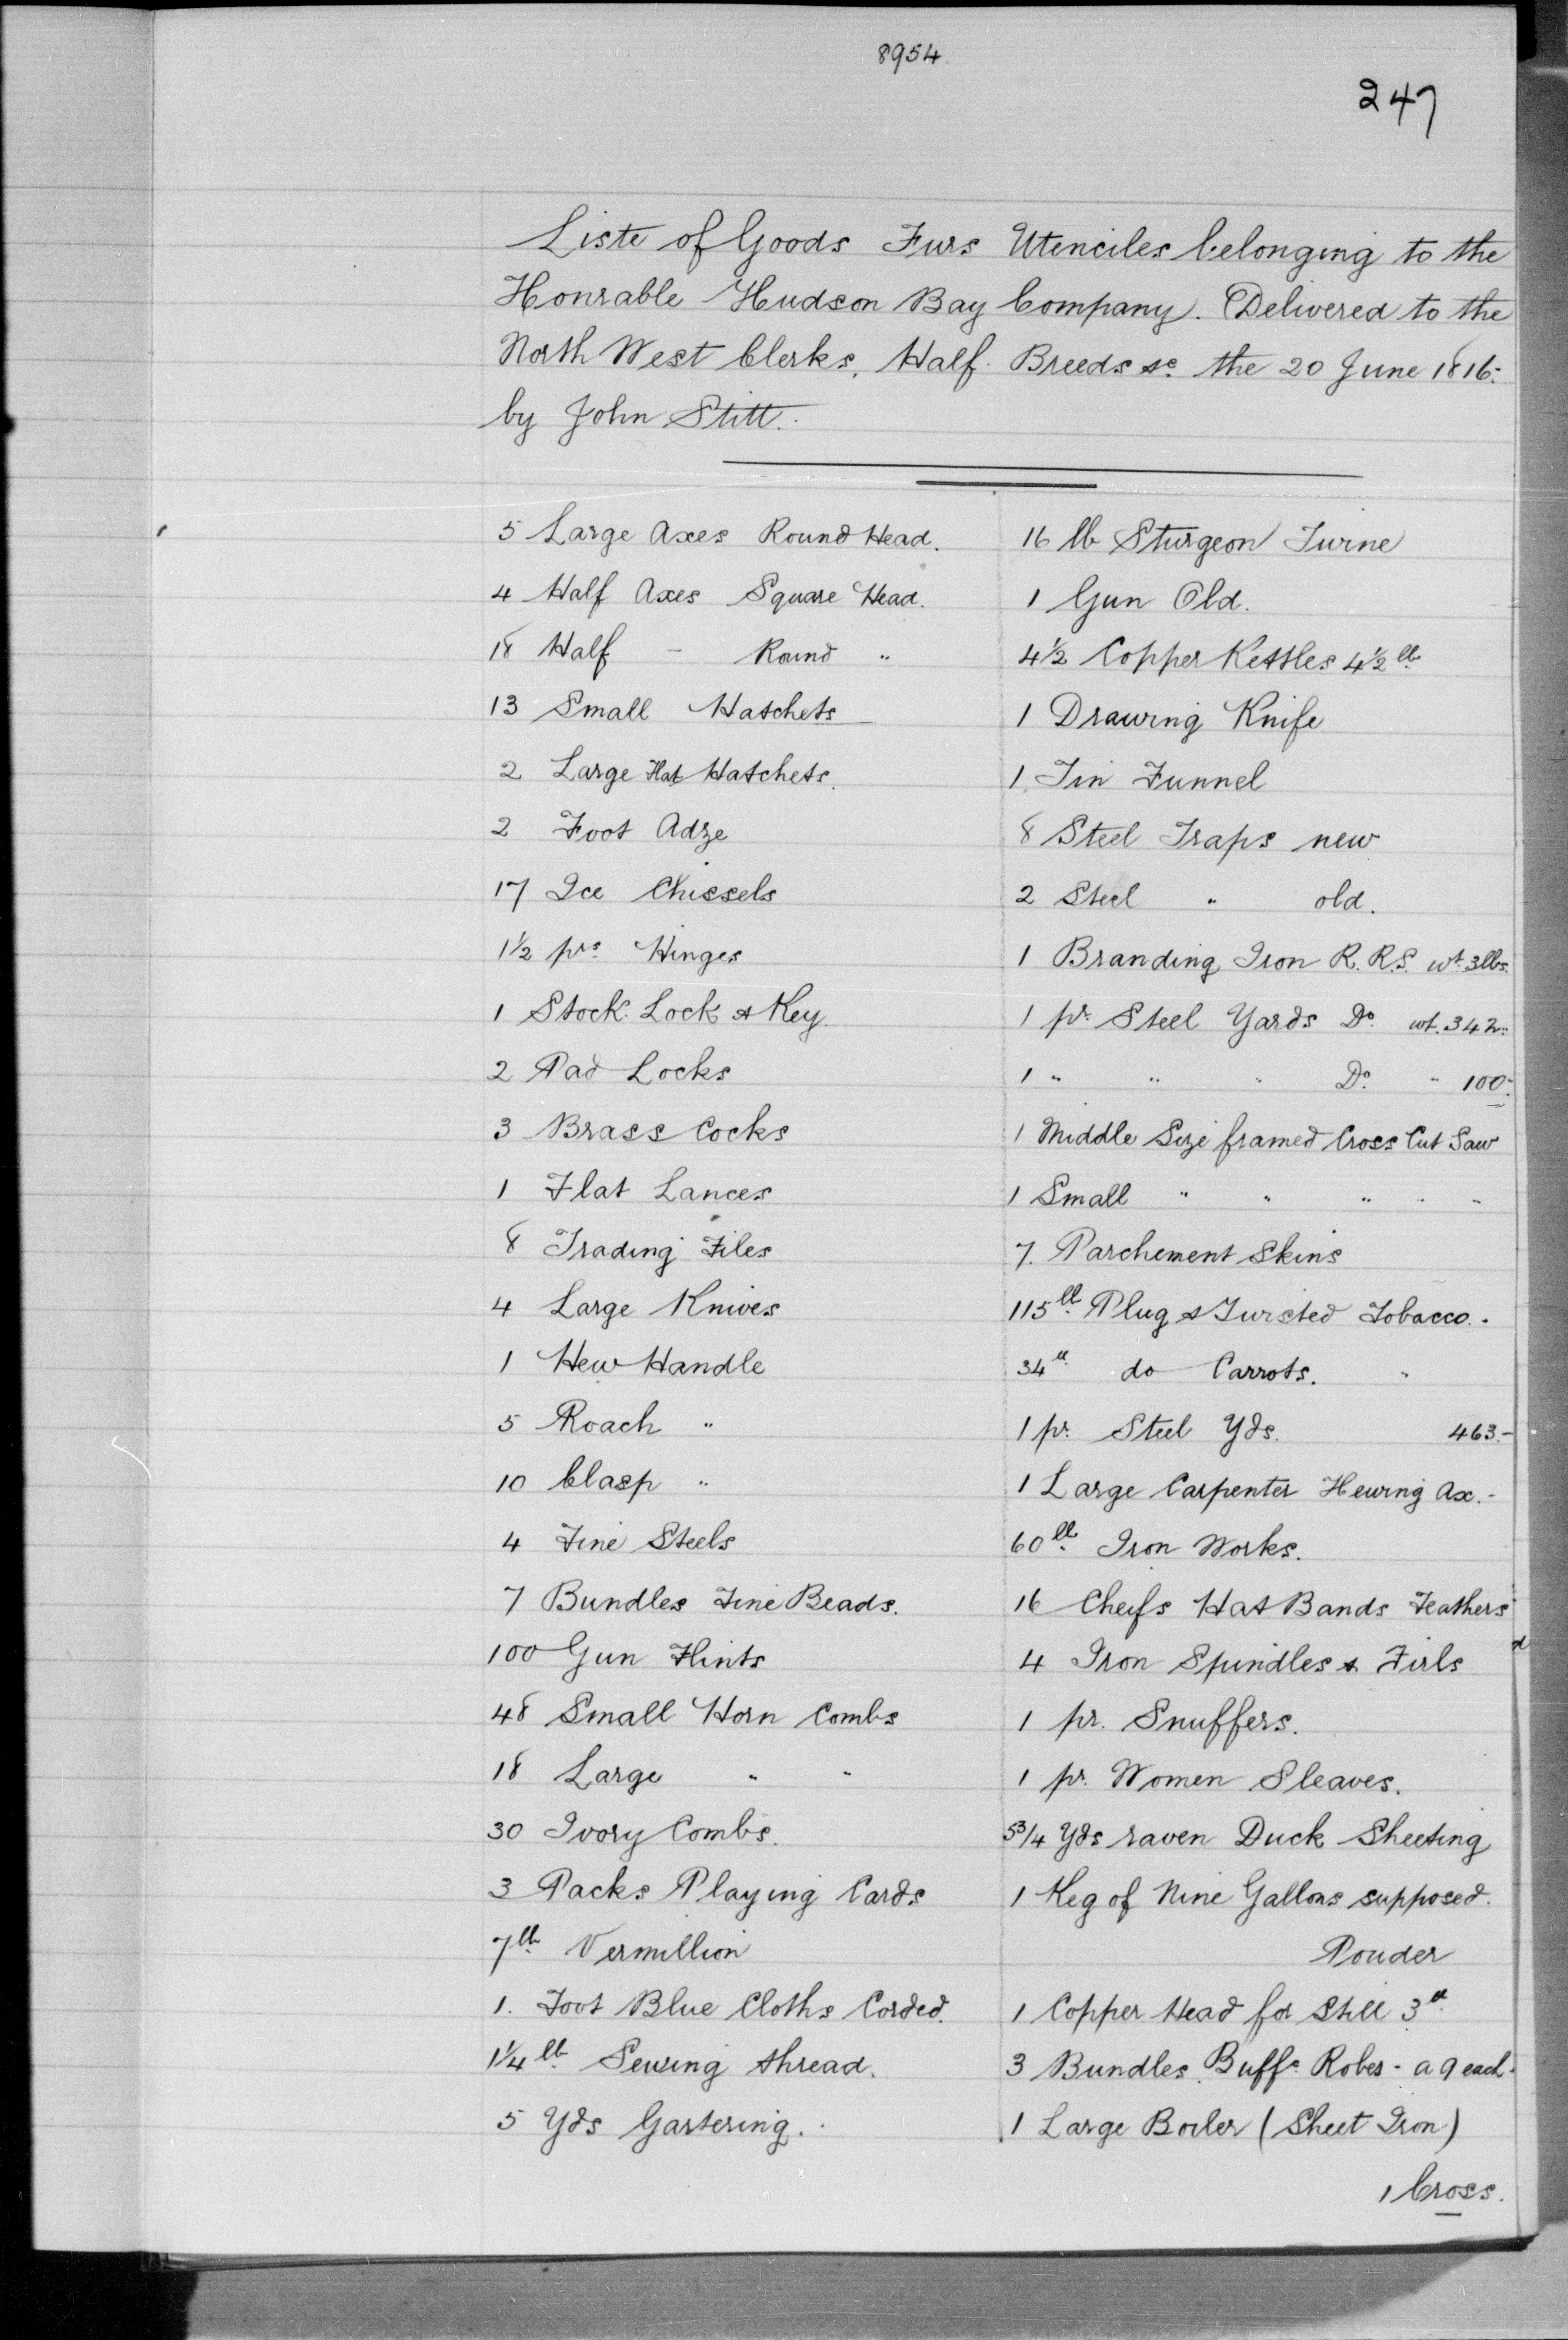 8954.
247
Liste of Goods Furs Utenciles belonging to the
Honrable Hudson Bay Company. Delivered to the
North West Clerks, Half Breeds &c the 20 June 1816.
by John Stitt.
5 Large Axes Round Head.
4 Half Axes Square Head.
18 Half - Round "
13 Small Hatchets
2 Large Flat Hatchets.
2 Foot Adze
17 Ice Chissels
1½ prs Hinges
1 Stock Lock & Key.
2 Pad Locks
3 Brass Cocks
1 Flat Lances
8 Trading Files
4 Large Knives
1 Hew Handle
5 Roach "
10 Clasp "
4 Fine Steels
7 Bundles Fine Beads.
100 Gun Flints
48 Small Horn Combs
18 Large " "
30 Ivory Combs.
3 Packs Playing Cards
7 lb Vermillion
1. Foot Blue Cloths Corded.
1¼ lb Sewing thread.
5 Yds Gartering.
16 lb Sturgeon Twine
1 Gun Old.
4½ Copper Kettles 4½ lb
1 Drawing Knife
1 Tin Funnel
8 Steel Traps new
2 Steel " old.
1 Branding Iron R.R.S. wt. 3lbs.
1 pr. Steel Yards Do. wt. 342.
1 " " " Do. " 100.
1 Middle Size framed Cross Cut Saw
1 Small " " " " "
7. Parchement Skins
115 lb Plug & Twisted Tobacco.
34 lb do Carrots. "
1 pr. Steel Yds. 463.-
1 Large Carpenter Hewing Ax.-
60 lb Iron Works.
16 Cheifs Hat Bands Feathers
4 Iron Spindles & Firls
1 pr. Snuffers.
1 pr. Women Sleaves.
5¾ Yds raven Duck Sheeting
1 Keg of Nine Gallons supposed.
Pouder
1 Copper Head for Still 3 lb
3 Bundles Buffe Robes - a 9 each.
1 Large Boiler (Sheet Iron)
1 Cross.